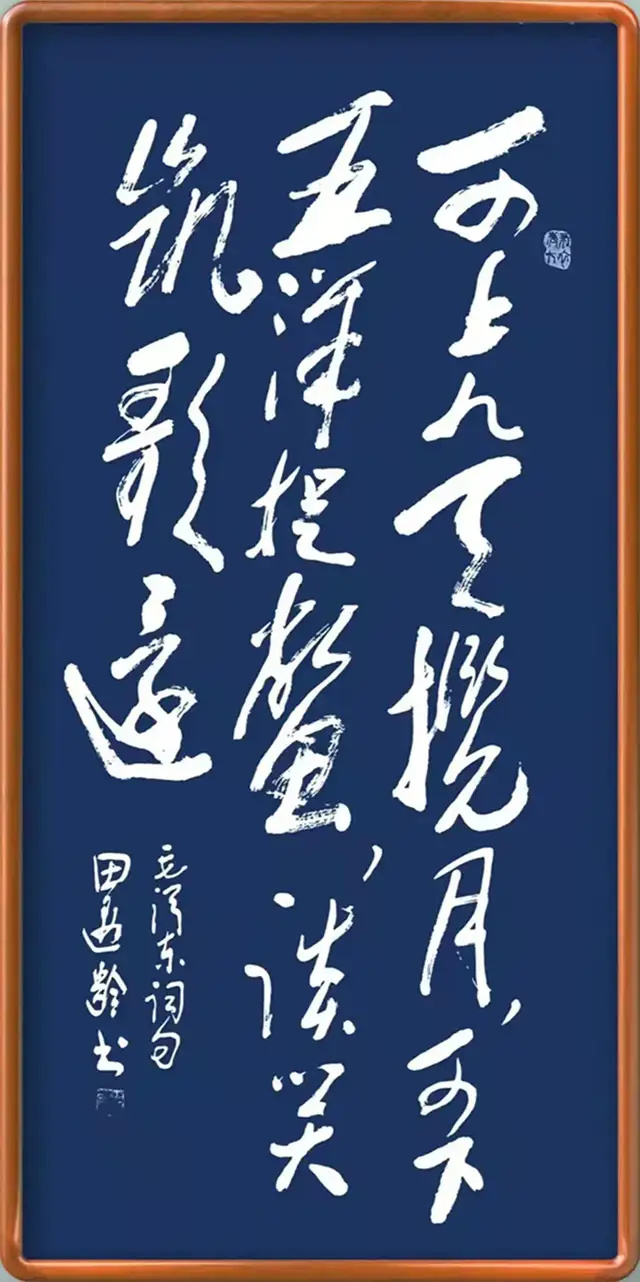 可上九天揽月,可下
五洋捉鳖,谈笑
凯歌還
毛泽东词句
田遐龄书